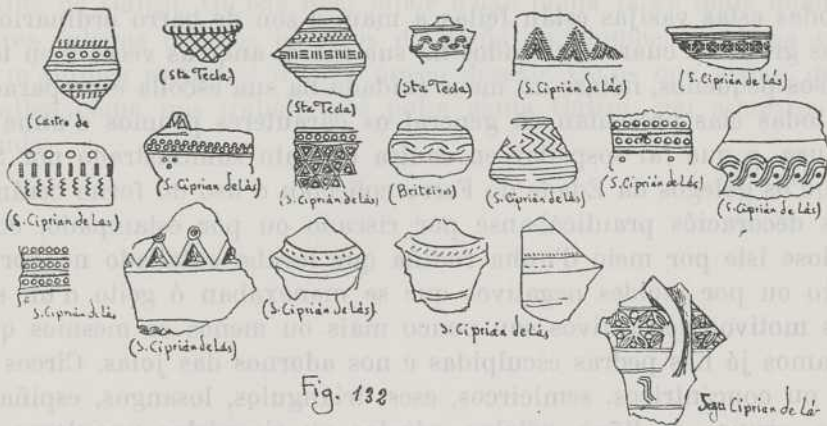 (Castro de
(Sta Tecla)
(Sta Tecla)
(Sta Tecla)
(S. Ciprián de Lás)
(S. Ciprián de Lás)
(S. Ciprian de Lás)
(S. Ciprian de Lás)
(S. Ciprián de Lás)
(Briteiros)
(S. Ciprián de Lás)
(S. Ciprián de Lás)
(S. Ciprián de Lás)
S. Ciprián de Lás
(S. Ciprián de Lás)
(S. Ciprián de Lás)
S. Ciprián de Lás
Ciprian de Lás
Fig. 132